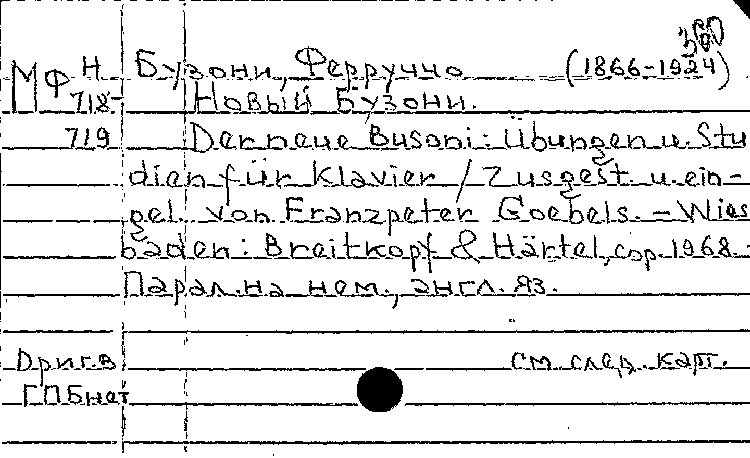 Бузони, Ферруччо (1866-1924)
МФ Н 718- Новый Бузони.
719 Der neue Busoni: Übungen u. Stu
dien für Klavier / Zusgest. u. ein-
gel. von Franzpeter Goebels. - Wies
baden: Breitkopf & Härtel, cop. 1968.
Парал. на нем., англ. яз.
Ориг. в см. след. карт.
ГПБ нет